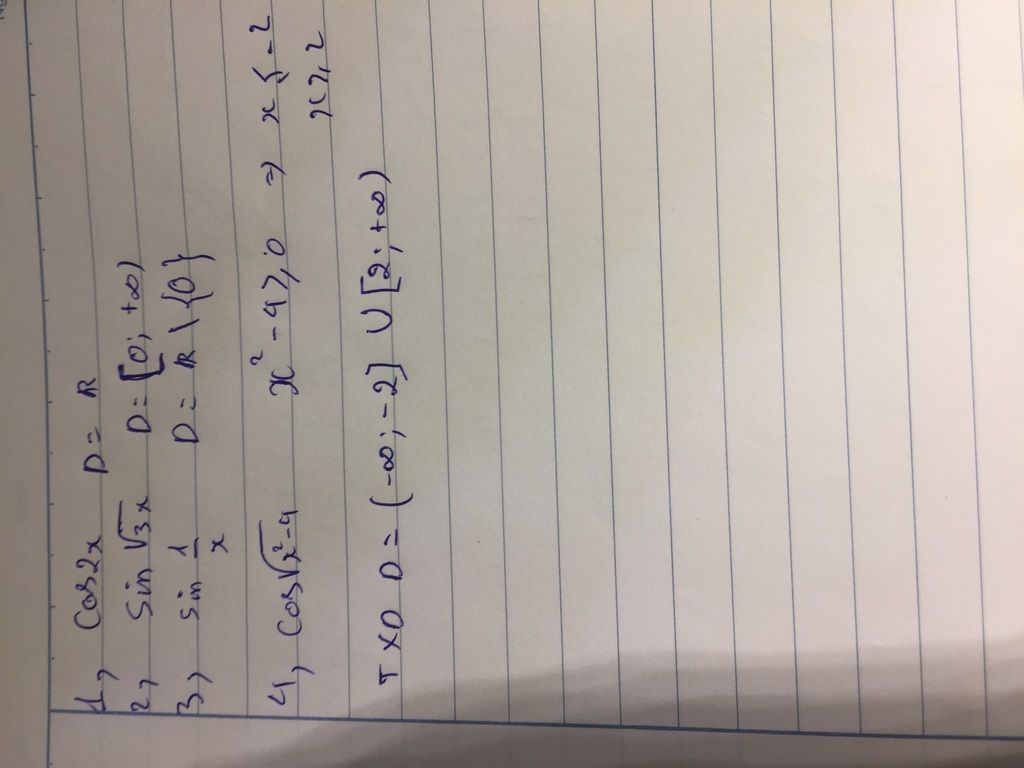 1, Cos2x D = R
2, Sin √3x D = [0; +∞)
3, sin 1/x D = R \ {0}
4, cos√x²-4 x² - 4 ⩾ 0 ⇒ x ⩽ -2
x ⩾ 2
TXD D = (-∞; -2] ∪ [2; +∞)